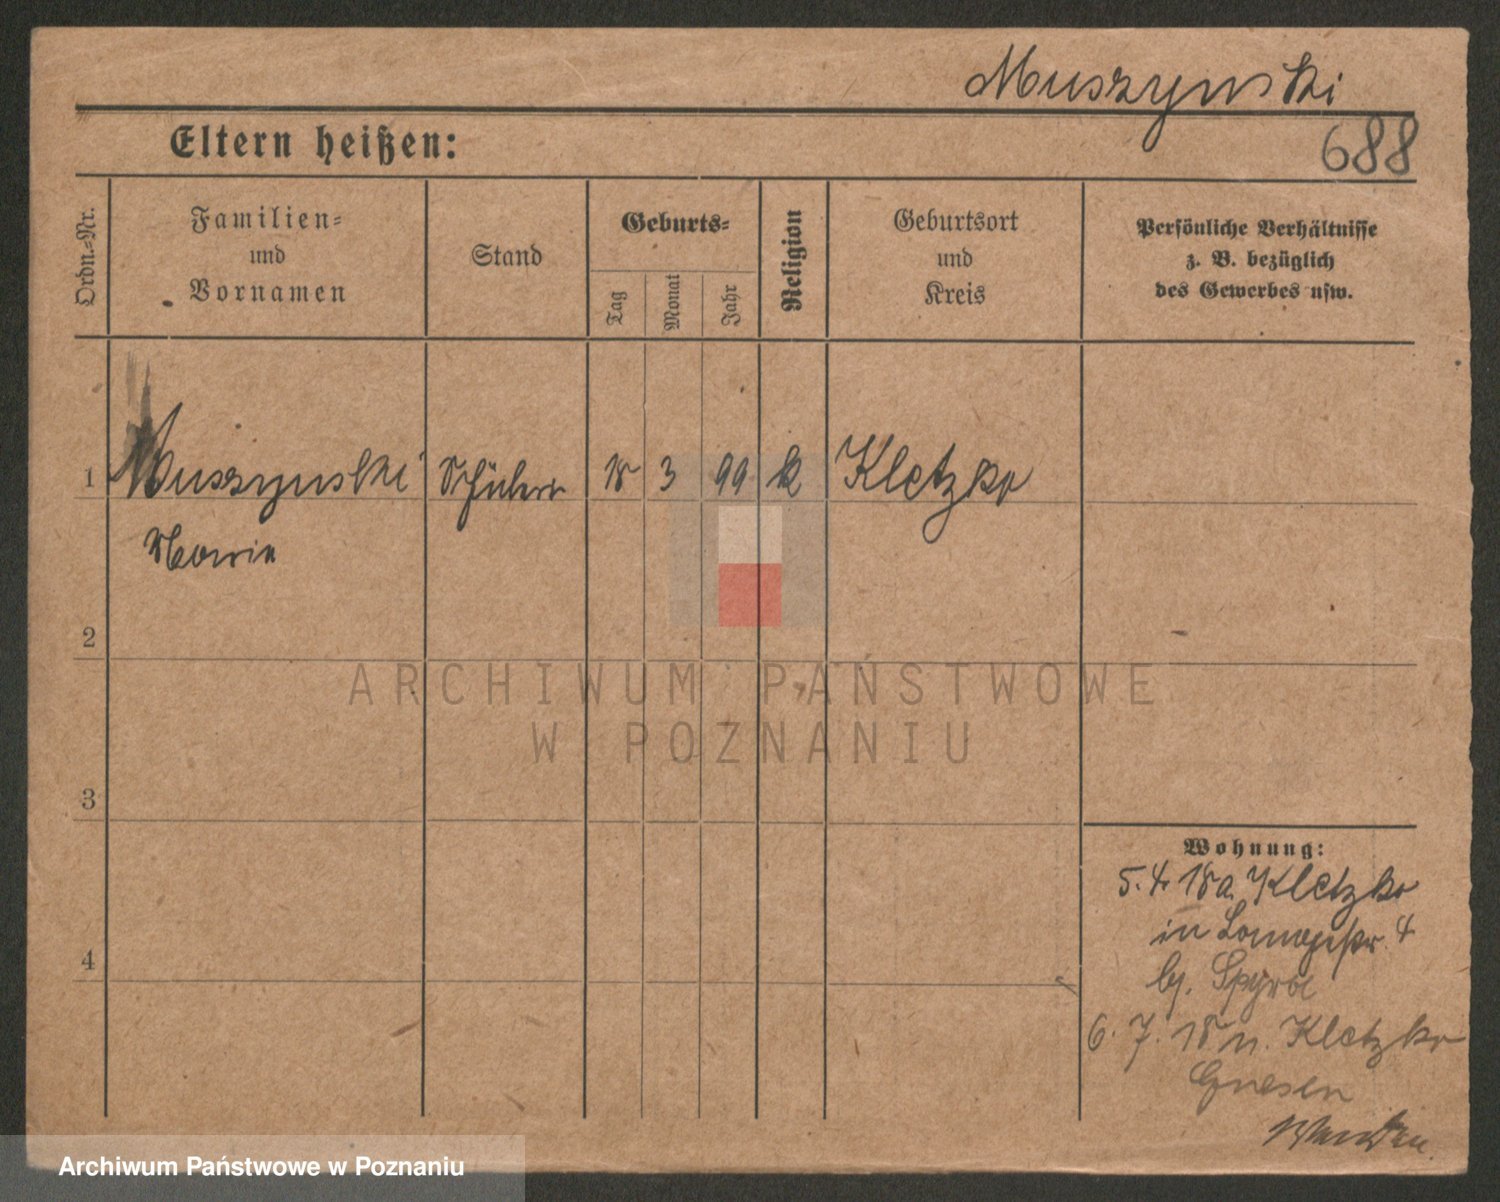 Muszynski
Eltern heißen:
688
Ordn.-Nr.
Familien-
und
Vornamen
Stand
Geburts-
Tag
Monat
Jahr
Religion
Geburtsort
und
Kreis
Persönliche Verhältnisse
z. B. bezüglich
des Gewerbes usw.
1 Muszynski Schüler 18 3 99 k Kletzko
Marie
2
3
4
Wohnung:
5. 4. 18 a. Kletzko
in 4
bj.
6. 7. 18 n. Kletzko
Gnesen
Wenden.
ARCHIWUM PAŃSTWOWE
W POZNANIU
Archiwum Państwowe w Poznaniu